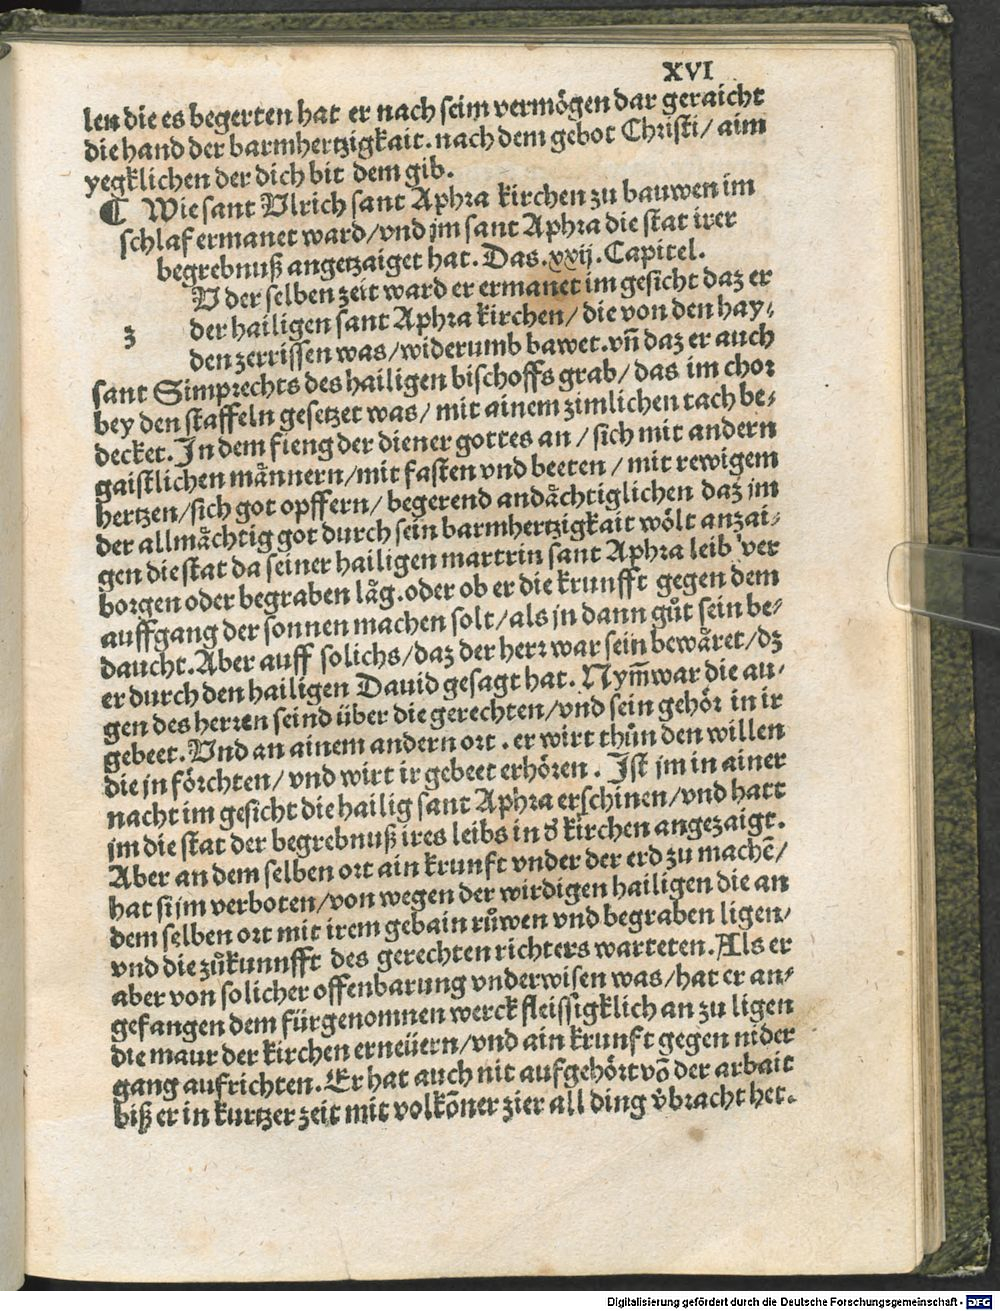 XVI
len die es begerten hat er nach seim vermögen dar geraicht
die hand der barmhertzigkait. nach dem gebot Christi/ aim
yegklichen der dich bit dem gib.
¶ Wie sant Vlrich sant Aphra kirchen zu bauwen im
schlaf ermanet ward/vnd jm sant Aphra die stat irer
begrebnuß angetzaiget hat. Das .xxij. Capitel.
V der selben zeit ward er ermanet im gesicht daz er
der hailigen sant Aphra kirchen/ die von den hay⸗
z
den zerrissen was/widerumb bawet.vñ daz er auch
sant Simprechts des hailigen bischoffs grab/ das im chor
bey den staffeln gesetzet was/ mit ainem zimlichen tach be⸗
decket. In dem fieng der diener gottes an/ sich mit andern
gaistlichen maͤnnern/mit fasten vnd beeten/ mit rewigem
hertzen/sich got opffern/ begerend andaͤchtiglichen daz jm
der allmaͤchtig got durch sein barmhertzigkait woͤlt anzai⸗
gen die stat da seiner hailigen martrin sant Aphra leib ver
borgen oder begraben laͤg.oder ob er die krunfft gegen dem
auffgang der sonnen machen solt/als jn dann guͦt sein be⸗
daucht. Aber auff solichs/daz der herr war sein bewaͤret/dz
er durch den hailigen Dauid gesagt hat. Nym̄war die au⸗
gen des herren seind über die gerechten/vnd sein gehoͤr in ir
gebeet. Vnd an ainem andern ort . er wirt thuͦn den willen
die jn foͤrchten/ vnd wirt ir gebeet erhoͤren. Ist jm in ainer
nacht im gesicht die hailig sant Aphra erschinen/vnd hatt
jm die stat der begrebnuß ires leibs in d̕ kirchen angezaigt.
Aber an dem selben ort ain krunft vnder der erd zu machē/
hat si jm verboten/von wegen der wirdigen hailigen die an
dem selben ort mit irem gebain ruͦwen vnd begraben ligen/
vnd die zuͦkunnfft des gerechten richters warteten. Als er
aber von solicher offenbarung vnderwisen was/hat er an⸗
gefangen dem fürgenomnen werck fleissigklich an zu ligen
die maur der kirchen erneüern/vnd ain krunft gegen nider
gang aufrichten. Er hat auch nit aufgehoͤrt võ der arbait
biß er in kurtzer zeit mit volkõner zier all ding v̕bracht het.
Digitalisierung gefördert durch die Deutsche Forschungsgemeinschaft - DFG